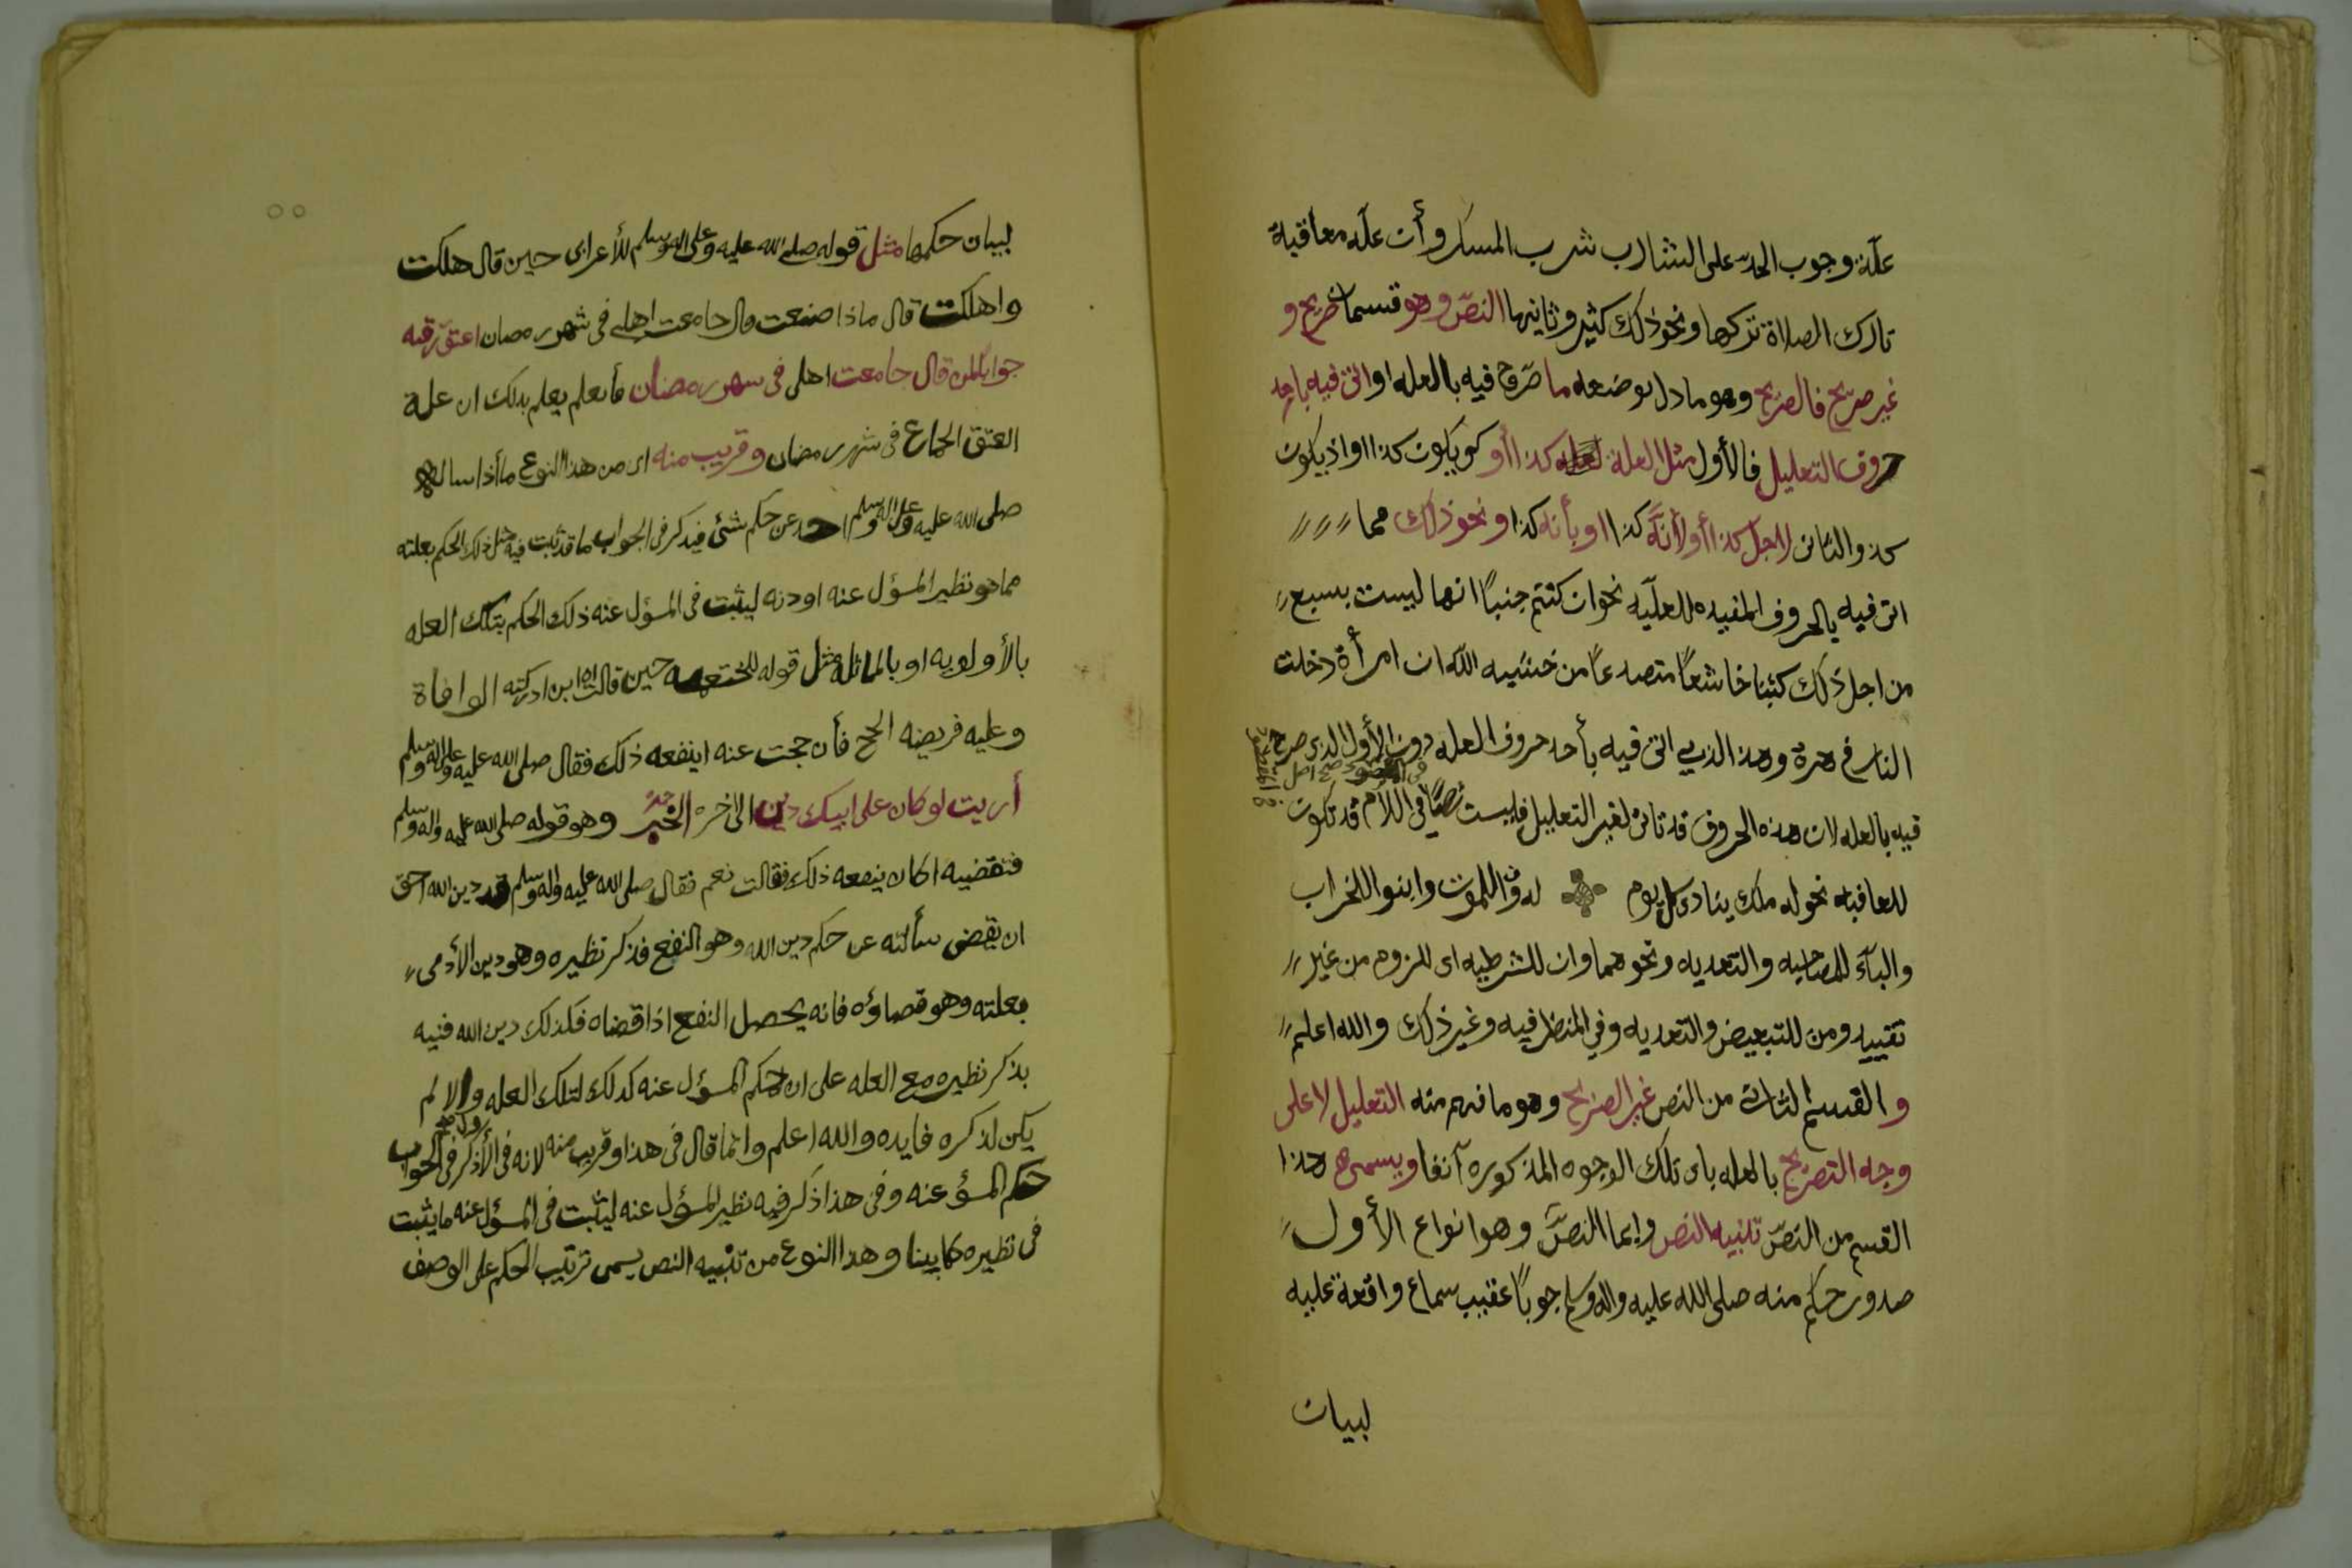 علّة وجوب الحدّ على الشارب شرب المسكر وأن علّه معاقبة
تارك الصلاة تركها ونحو ذلك كثير وثانيها النصّ وهو قسمان صريح و
غير صريح فالصريح وهو ما دل بوضعه ما صّرح فيه بالعله او اتى فيه باحد
حروف التعليل فالأول مثل العلة كذا أو كو يكون كذا او اذ يكون
كذ والثانى لاجل كذا أو لأنّه كذا او بأنه كذا ونحو ذلك مما
اتى فيه بالحروف المفيده للعليّه نحو ان كنتم جنباً انها ليست بسبع
من اجل ذلك كتبنا خاشعاً متصدعاً من خشيه الله ان امرأة دخلت
النار فى هرة وهذ الذي اتى فيه بأحد حروف العله دون الأول الذى صرح
فيه بالعله لان هذه الحروف قد تاتى لغير التعليل فليست نصّاً فى اللام قد تكون
للعاقبه نحو له ملك ينادى كل يوم لدوا للموت وابنوا للخراب
والبآء للمصاحبه والتعديه ونحوهما وان للشرطيه اى للزوم من غير
تقييد ومن للتبعيض والتعديه وفي للظرفيه وغير ذلك والله اعلم
و القسم الثانى من النص غير الصريح وهو ما فهم منه التعليل لا على
وجه التصريح بالعله باى تلك الوجوه المذكوره آنفا ويسمى هذا
القسم من النصّ تنبيه النص وإيما النصّ وهو انواع الأول
صدور حكم منه صلى الله عليه واله وسلم جوباً عقيب سماع واقعة عليه
لبيان
لبيان حكمها مثل قوله صلى الله عليه وعلى اله وسلم للأعرابى حين قال هلكت
واهلكت قال ماذا صنعت قال جامعت اهلى فى شهر رمضان اعتق رقبه
جواباً لمن قال جامعت اهلى فى شهر رمضان فأنعلم يعلم بذلك ان علة
العتق الجماع فى شهر رمضان وقريب منه اى من هذا النوع ما اذا سأله
صلى الله عليه وعلى اله وسلم احد عن حكم شئى فيذكر فى الجواب ما قد ثبت فيه مثل ذلك الحكم بعلته
مما هو نظير المسؤل عنه او دنه ليثبت فى المسؤل عنه ذلك الحكم بتلك العله
بالأولويه او بالماثله مثل قوله للخثعميه حين قالت ان ابى ادركته الوافاة
وعليه فريضه الحج فأن حجت عنه اينفعه ذلك فقال صلى الله عليه وعلى اله وسلم
أريت لو كان على ابيك دين الى اخره الخبر وهو قوله صلى الله عليه واله وسلم
فتقضيه اكان ينفعه ذلك فقالت نعم فقال صلى الله عليه واله وسلم فدين الله احق
ان يقضى سألته عن حكم دين الله وهو النفع فذكر نظيره وهو دين الأدمى
بعلته وهو قصاؤه فانه يحصل النفع اذا قضاه فكذلك دين الله فنبه
بذكر نظيره مع العله على ان حكم المسؤل عنه كذلك لتلك العله والا لم
يكن لذكره فايده والله اعلم وانما قال فى هذا وقريب منه لانه فى الأول ذكر فى الجواب
حكم المسؤ عنه وفى هذا ذكر فيه نظير المسؤل عنه ليثبت فى المسؤل عنه ما يثبت
فى نظيره كما بينا وهذا النوع من تنبيه النص يسمى ترتيب الحكم على الوصف